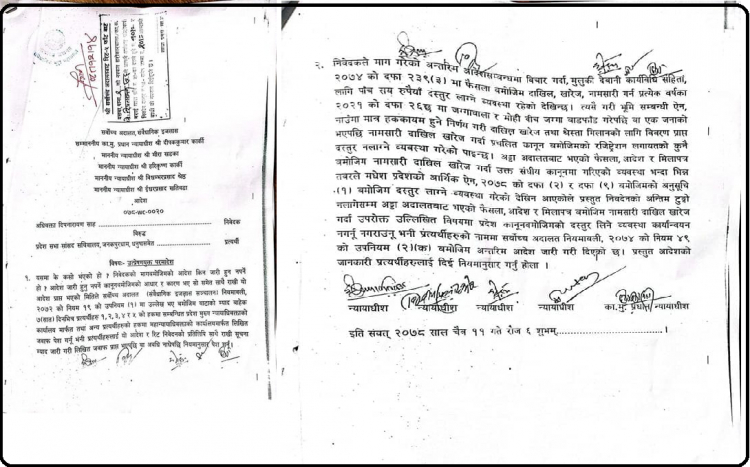 सर्वोच्च अदालत, संवैधानिक इजलास
सम्माननीय का.मु. प्रधान न्यायाधीश श्री दिपककुमार कार्की
माननीय न्यायाधीश श्री मीरा खडका
माननीय न्यायाधीश श्री हरिकृष्ण कार्की
माननीय न्यायाधीश श्री विश्वम्भरप्रसाद श्रेष्ठ
माननीय न्यायाधीश श्री ईश्वरप्रसाद खतिवडा
आदेश
०७८-WC-००२०
अधिवक्ता दिपनारायण साह निवेदक
विरुद्ध
प्रदेश सभा सांसद सचिवालय, जनकपुरधाम, धनुषासमेत प्रत्यर्थी
विषयः- उत्प्रेषणयुक्त परमादेश
१. यसमा के कसो भएको हो ? निवेदकको मागबमोजिमको आदेश किन जारी हुनु नपर्ने
हो ? आदेश जारी हुनु नपर्ने कानूनबमोजिमको आधार र कारण भए सो समेत साथै राखी यो
आदेश प्राप्त भएको मितिले सर्वोच्च अदालत (संवैधानिक इजलास सञ्चालन) नियमावली,
२०७२ को नियम १९ को उपनियम (१) मा उल्लेख भए बमोजिम बाटाको म्याद बाहेक
७(सात) दिनभित्र प्रत्यर्थीहरु १,२,३,४ र ५ को हकमा सम्बन्धित प्रदेश मुख्य न्यायाधिवक्ताको
कार्यालय मार्फत तथा अन्य प्रत्यर्थीहरुको हकमा महान्यायाधिवक्ताको कार्यालयमार्फत लिखित
जवाफ पेश गर्नु भनी प्रत्यर्थीहरुलाई यो आदेश र रिट निवेदनको प्रतिलिपि साथै राखी सूचना
म्याद जारी गरी लिखित जवाफ प्राप्त भएपछि वा अवधि नाघेपछि नियमानुसार पेश गर्नु।
२. निवेदकले माग गरेको अन्तरिम आदेशसम्बन्धमा विचार गर्दा, मुलुकी देवानी कार्यविधि संहिता,
२०७४ को दफा २३९(३) मा फैसला बमोजिम दाखिल, खारेज, नामसारी गर्न प्रत्येक वर्षका
लागि पाँच सय रुपैयाँ दस्तुर लाग्ने व्यवस्था गरेको देखिन्छ। त्यसै गरी भूमि सम्बन्धी ऐन,
२०२१ को दफा २६छ मा जग्गावाला र मोही बीच जग्गा बाडफाँड गरेपछि वा एक जनाको
नाउँमा मात्र हककायम हुने निर्णय गरी दाखिल खारेज तथा श्रेस्ता मिलानको लागि विवरण प्राप्त
भएपछि नामसारी दाखिल खारेज गर्दा प्रचलित कानून बमोजिमको रजिष्ट्रेशन लगायतको कुनै
दस्तुर नलाग्ने व्यवस्था गरेको पाइन्छ। अड्डा अदालतबाट भएको फैसला, आदेश र मिलापत्र
बमोजिम नामसारी दाखिल खारेज गर्दा उक्त संघीय कानूनमा गरिएको व्यवस्था भन्दा भिन्न
तवरले मधेश प्रदेशको आर्थिक ऐन, २०७८ को दफा (२) र दफा (९) बमोजिमको अनुसूचि
(१) बमोजिम दस्तुर लाग्ने व्यवस्था गरेको देखिन आएकोले प्रस्तुत निवेदनका अन्तिम टुङ्गो
नलागेसम्म अड्डा अदालतबाट भएको फैसला, आदेश र मिलापत्र बमोजिम नामसारी दाखिल खारेज
गर्दा उपरोक्त उल्लिखित विषयमा प्रदेश कानूनबमोजिमको दस्तुर लिने व्यवस्था कार्यान्वयन
नगर्नू नगराउनू भनी प्रत्यर्थीहरुको नाममा सर्वोच्च अदालत नियमावली, २०७४ को नियम ४९
को उपनियम (२)(क) बमोजिम अन्तरिम आदेश जारी गरी दिएको छ। प्रस्तुत आदेशको
जानकारी प्रत्यर्थीहरुलाई दिई नियमानुसार गर्नु होला ।
न्यायाधीश न्यायाधीश न्यायाधीश न्यायाधीश का.मु. प्रधान न्यायाधीश
इति संवत् २०७८ साल चैत्र ११ गते रोज ६ शुभम्